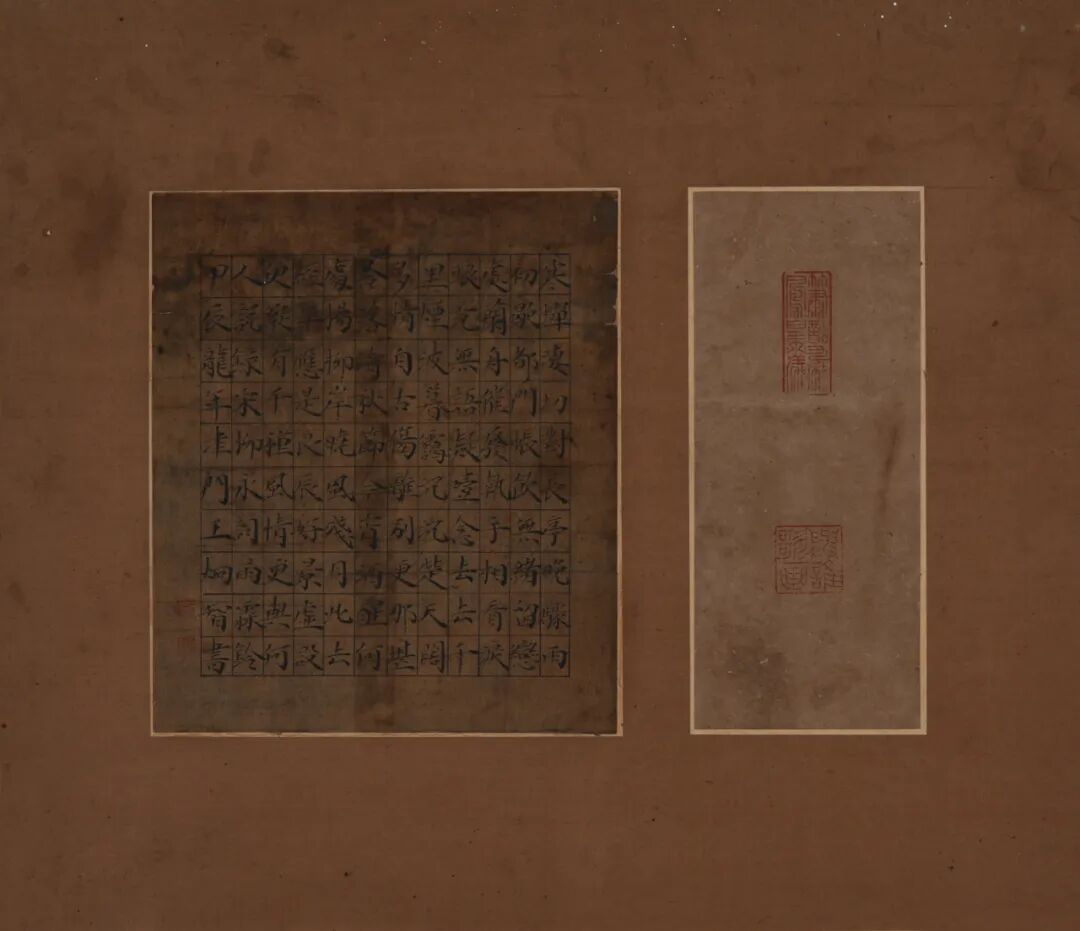 寒蟬淒切對長亭晚驟雨
初歇都門帳飲無緒留戀
處蘭舟催發執手相看淚
眼竟無語凝噎念去去千
里煙波暮靄沉沉楚天闊
多情自古傷離別更那堪
冷落清秋節今宵酒醒何
處楊柳岸曉風殘月此去
經年應是良辰好景虛設
便縱有千種風情更與何
人說錄宋柳永詞雨霖鈴
甲辰龍年津門王炯智書